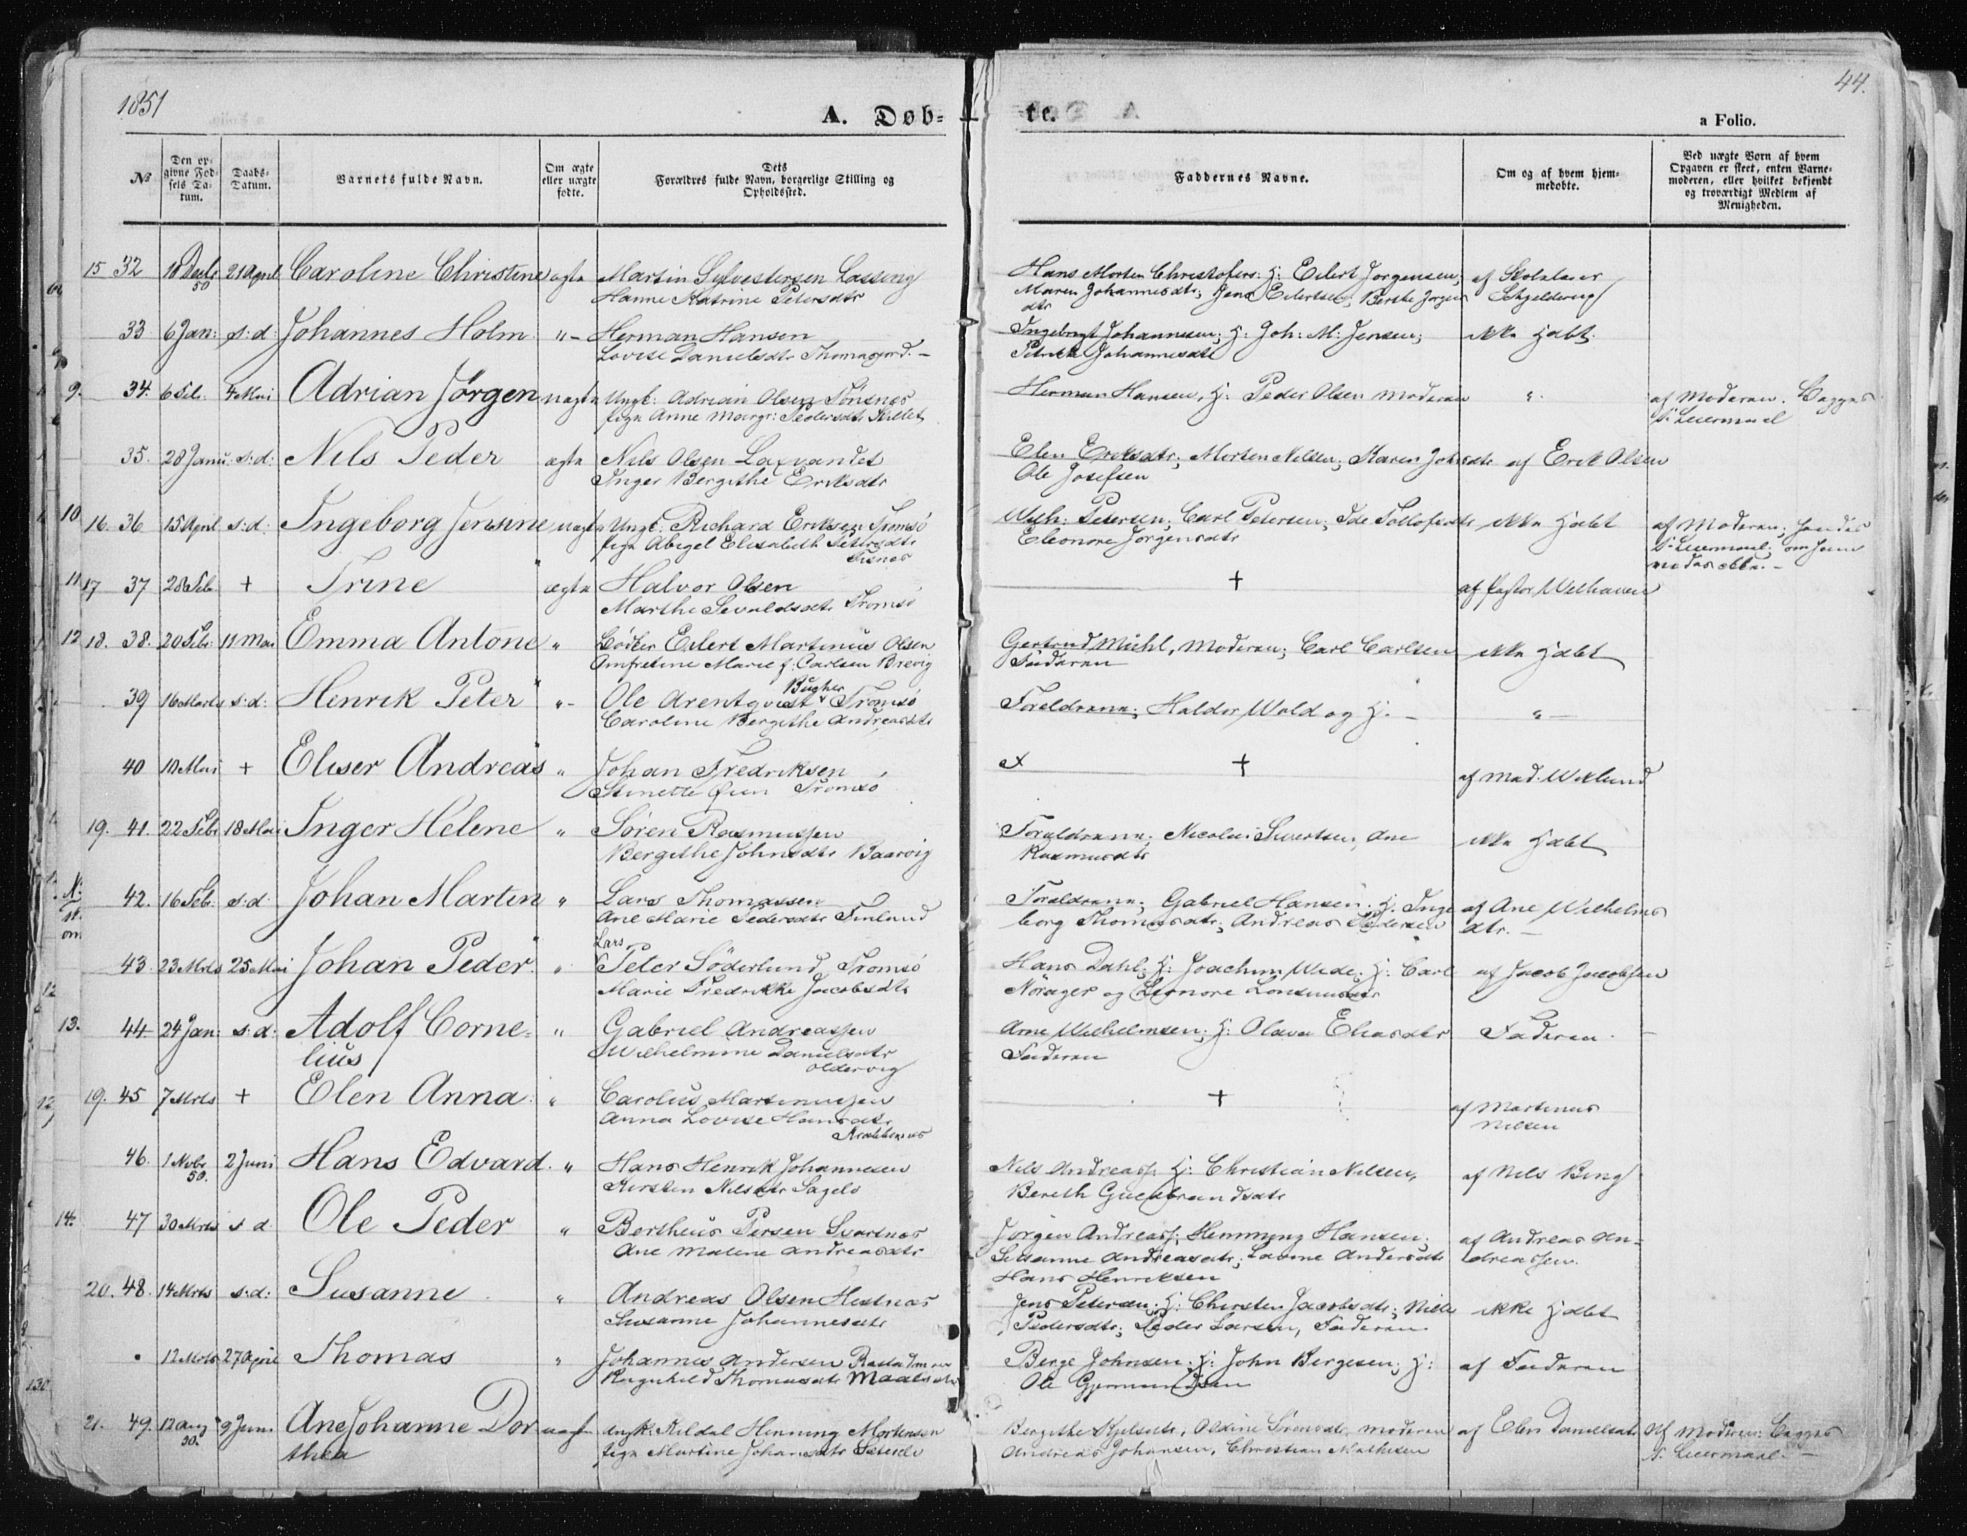 1851
44.
A. Døb-
te.
a Folio.
№
Den op-
givne Fød-
sels Da-
tum.
Daabs-
Datum.
Barnets fulde Navn.
Om ægte
eller uægte
fødte.
Dets
Forældres fulde Navn, borgerlige Stilling og
Opholdssted.
Faddernes Navne.
Om og af hvem hjem-
medøbte.
Ved uægte Børn af hvem
Opgaven er skeet, enten Barne-
moderen, eller hvilket bekjendt
og troværdigt Medlem af
Menigheden.
15 32 18 Decbr 21 April Caroline Christine ægte Martin Sylvestersen Lasseng Hans Morten Christofers: H: Eilert Jørgensen; af Skolelærer
50 Hanne Katrine Petersdtr Maren Johannesdtr; Jens Eilertsen; Berthe Jørgens
dtr
33 6 Jan: s: d: Johannes Holm "- Herman Hansen Ingebrigt Johannesen; H: Joh: M: Jensen; ikke hjdbt.
Lovise Danielsdtr Petrikke Johannesdtr
9. 34. 6 Feb. 4 Mai Adrian Jørgen uægte Ungk: Adrian Olsen Tønsnes Herman Hansen, H: Peder Olsen Moderen ". af Moderen. Begges
Pign Anne Margr: Pedersdtr 1ste Leiermaal
35. 28 Janu. s: d: Nils Peder ægte Nils Olsen Laxvandet Elen Eriksdtr; Morten Nilsen; Karen Johsdtr af Erik Olsen
Inger Bergithe Eriksdtr Ole Josefsen
10 16. 36 15 April s: d: Ingeborg Jensine uægte Ungk: Richard Eriksen Tromsø Wilh: Petersen; Carl Petersen; Ide Tollefsdtr ikke hjdbt af Moderen;
Pign Abigel Elisabeth Petersdtr Eleonore Jørgensdtr
Tisnes
11 17 37 28 Feb + Trine ægte Halvor Olsen + af Pastor Welhaven
Marthe Sevaldsdtr Tromsø
12 18. 38. 20 Febr: 11 Mai Emma Antone " Eilert Martinus Olsen Gertrud Michl, Moderen; Carl Carlsen ikke hjdbt
Marie f: Carlsen Brevig Faderen
39 16 Marts s: d: Henrik Peter "- Ole Arentqvist Tromsø Forældrene; Haldor Wold og H: - "-
Caroline Bergithe Andreasdtr
40 10 Mai + Eliser Andreas " Johan Fredriksen + af Mad. Wiklund
Tromsø
19. 41. 22 Febr 18 Mai Inger Helene " Søren Rasmussen Forældrene; Nicolai Sivertsen, Ane ikke hjdbt
Bergithe Johnsdtr Baarvig Rasmusdtr
42. 16 Feb. s: d: Johan Martin " Lars Thomassen Forældrene; Gabriel Hansen; H: Inge af Ane Wilhelms
Ane Marie Pedersdtr Finland borg Thomasdtr; Andreas Pedersen dtr. -
Lars
43. 23 Mrts 25 Mai Johan Peder " Peter Söderlund Tromsø Hans Dahl; H: Joachim Wede; H: Carl af Jacob Jacobsen
Marie Fredrikke Jacobsdtr Nörager og Leonore
13. 44. 24 Jan: s: d: Adolf Corne- " Gabriel Andreassen Arne Wilhelmsen; H: Olava Eliasdtr Faderen.
lius Wilhelmine Danielsdtr Faderen
Oldervig
19. 45 7 Mrts + Elen Anna " Carolus Martinussen + af Martinus
Anna Lovise Hansdtr Nilsen
46. 1 Nvbr 2 Juni Hans Edvard. " Hans Henrik Johannesen Nils Andreass: H: Christian Nilsen, af Nils Berg
50. Kirsten Nilsdtr Sagelv Bereth Gulbrandsdtr
14. 47 30 Mrts s d Ole Peder " Bertheus Persen Svartnes Jørgen Andreass; Hemming Hansen; af Andreas An-
Ane Malene Andreasdtr Susanne Andreasdtr; Andersdtr dreassen.
Hans Henriksen
20. 48. 14 Mrts s: d: Susanne " Andreas Olsen Hestnæs Jens Petersen; H: Chirsten Jacobsdtr; Nille ikke hjdbt
Susanne Johannesdtr Pedersdtr; Peder Larsen, Faderen
12 Mrts 27 April Thomas " Johannes Andersen Berge Johnsen; H: John Bergesen; H: af Faderen
Ragnhild Thomasdtr Maals Ole Gjermundsen
21. 49. 12 Aug 9 Juni Ane Johanne Dor uægte Ungk: Henning Mortensen Bergithe Kjelsdtr, Oldine Sørensdtr, Moderen af Elen Danielsdtr Af Moderen: Begges
50. thea Pign Martine Johansdtr Andreas Johansen, Christian Mathisen 1. Leiermaal -